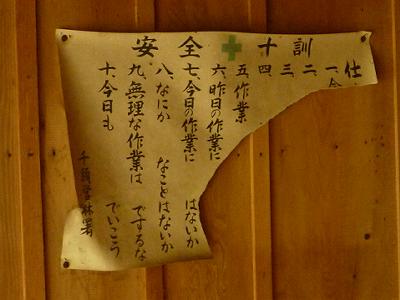 安全十訓
仕
一、今
二、
三、
四、
五、作業
六、昨日の作業に
七、今日の作業に はないか
八、なにか なことはないか
九、無理な作業は でするな
十、今日も でいこう
千頭営林署